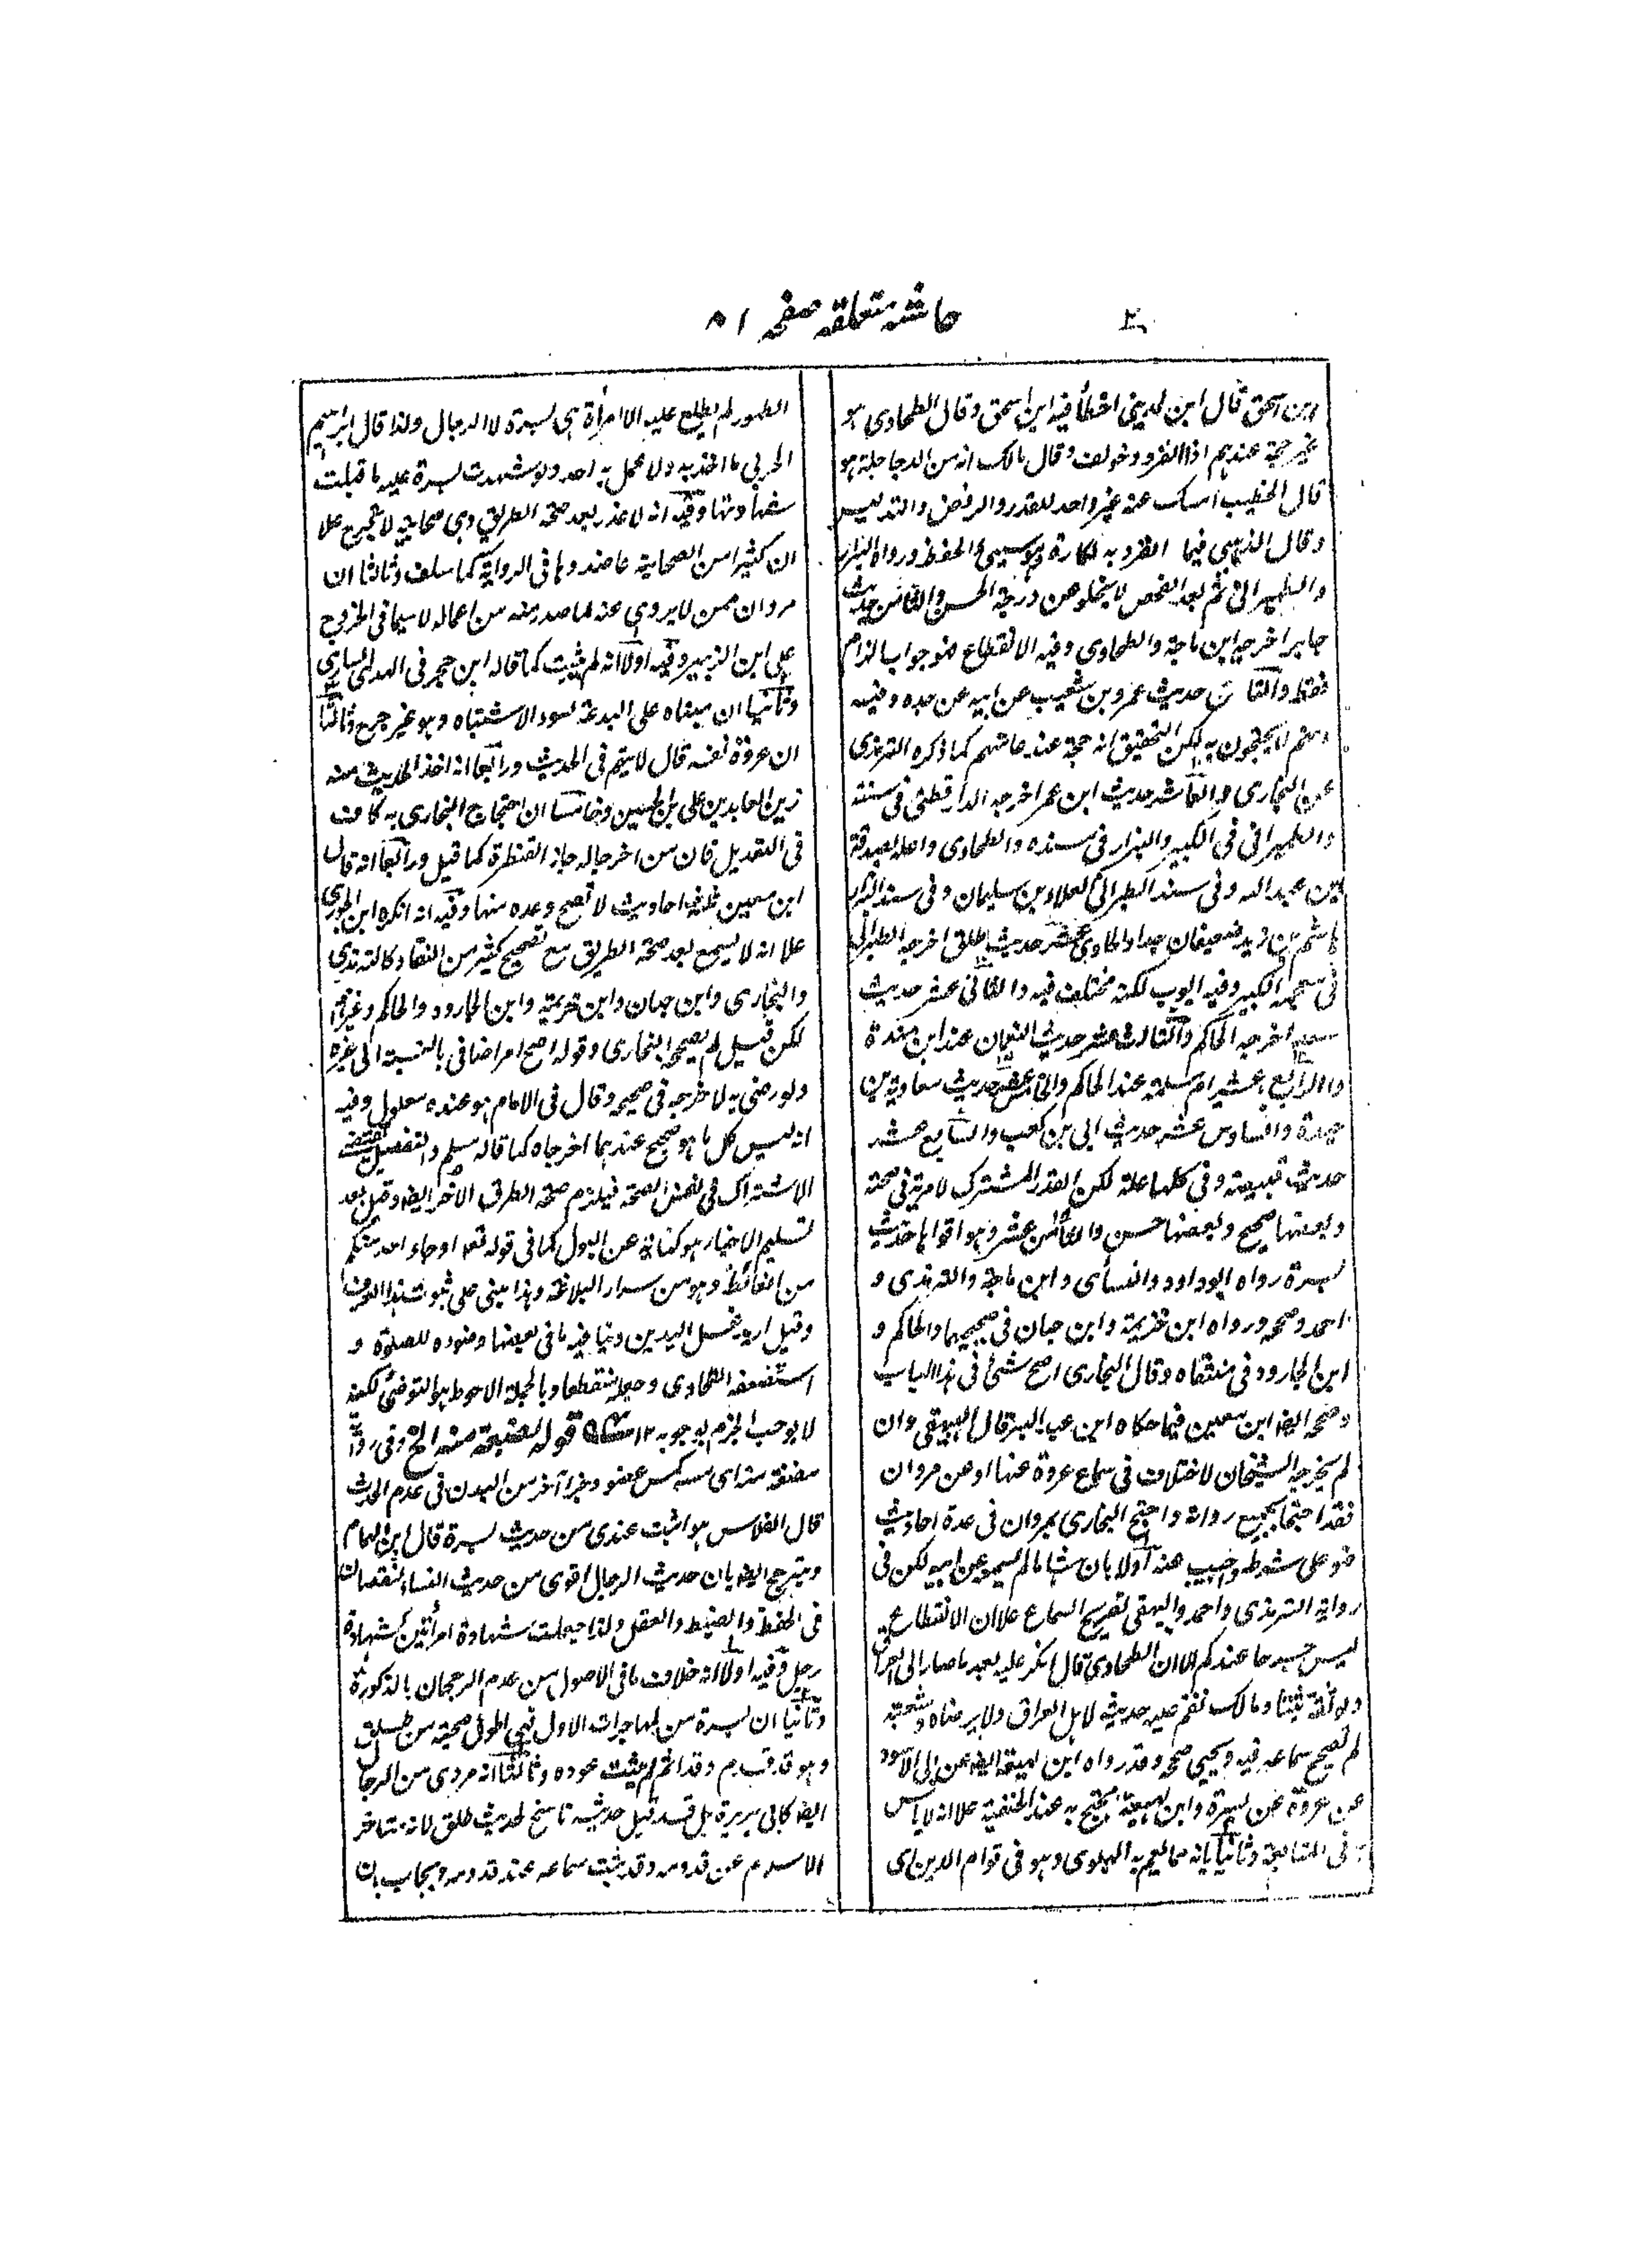 حاشیہ متعلقہ صفحہ ۸۱
ابن اسحق قال ابن المدینی اخطأ فیہ ابن اسحق وقال الطحاوی ہو
غیر حجۃ عندہم اذا انفرد وخولف وقال مالک انہ من الدجاجلۃ ہو
قال الخطیب امسک عنہ غیر واحد للقدر والرفض والتدلیس
وقال الذہبی فیما انفرد بہ نکارۃ وہو سیئ الحفظ ورواہ البزار
والطبرانی ثم بعد الفحص لا یخلو عن درجۃ الحسن والثامن حدیث
جابر اخرجہ ابن ماجۃ والطحاوی وفیہ الانقطاع فہو جواب الزام
فقط والتاسع حدیث عمرو بن شعیب عن ابیہ عن جدہ وفیہ
انہم لا یحتجون بہ لکن التحقیق انہ حجۃ عند عامتہم کما ذکرہ الترمذی
عن البخاری والعاشر حدیث ابن عمر اخرجہ الدارقطنی فی سننہ
والطبرانی فی الکبیر والبزار فی مسندہ والطحاوی واعلہ بصدقۃ
بن عبد اللہ وفی سند الطبرانی العلاء بن سلیمان وفی سند البزار
ہاشم بن زید ضعیفان جدا والحادی عشر حدیث طلق اخرجہ الطبرانی
فی معجمہ الکبیر وفیہ ایوب لکنہ مختلف فیہ والثانی عشر حدیث
سعد اخرجہ الحاکم والثالث عشر حدیث النعمان عند ابن مندۃ
والرابع عشر ام سلمۃ عند الحاکم والخامس عشر حدیث معاویۃ بن
حیدۃ والسادس عشر حدیث ابی بن کعب والسابع عشر
حدیث قبیصۃ وفی کلہا علۃ لکن القدر المشترک لا مریۃ فی صحتہ
وبعضہا صحیح وبعضہا حسن والثامن عشر وہو اقواہا حدیث
بسرۃ رواہ ابوداود والنسأی وابن ماجۃ والترمذی و
احمد وصححہ ورواہ ابن خزیمۃ وابن حبان فی صحیحیہما والحاکم و
ابن الجارود فی منتقاہ وقال البخاری اصح شئ فی ہذا الباب
وصححہ ایضا ابن معین فیما حکاہ ابن عبد البر قال البیہقی وان
لم یخرجہ الشیخان لاختلاف فی سماع عروۃ عنہا او عن مروان
فقد احتجا بجمیع رواتہ واحتج البخاری بمروان فی عدۃ احادیث
فہو علی شرطہ واجیب عنہ اولا بان ہشاما لم یسمع عن ابیہ لکن فی
روایۃ الترمذی واحمد والبیہقی تصریح السماع علا ان الانقطاع
لیس جرحا عندکم الا ان الطحاوی قال انکر علیہ بعد ما صار الی العراق
ولو ثقۃ ثبتا ومالک نقم علیہ حدیثہ لاہل العراق ولا یرضاہ وشعبۃ
لم یصحح سماعہ فیہ ویحیی صححہ وقد رواہ ابن لہیعۃ ایضا عن ابی الاسود
عن عروۃ عن بسرۃ وابن لہیعۃ یحتج بہ عند الحنفیۃ علا انہ لا باس
بہ فی المتابعۃ وثانیا بانہ مما یعم بہ البلوی وہو فی قوام الدین ای
الطہور لم یطلع علیہ الا امرأۃ ہی بسرۃ لا الرجال ولذا قال ابراہیم
الحربی ما اخذ بہ ولا عمل بہ احد ولو شہدت بسرۃ علیہ ما قبلت
شہادتہا وفیہ انہ لا عذر بعد صحۃ الطریق وہی صحابیۃ لا تجرح علا
ان کثیرا من الصحابۃ عاضدوہا فی الروایۃ کما سلف وثالثا ان
مروان ممن لا یروی عنہ لما صدر منہ من اعمالہ لا سیما فی الخروج
علی ابن الزبیر وفیہ اولا انہ لم یثبت کما قالہ ابن حجر فی الہدی الساری
وثانیا ان مبناہ علی البدعۃ لسوء الاشتباہ وہو غیر جرح وثالثا
ان عروۃ نفسہ قال لا یتہم فی الحدیث ورابعا انہ اخذ الحدیث منہ
زین العابدین علی بن الحسین وخامسا ان احتجاج البخاری بہ کاف
فی التعدیل فان من اخرج لہ جاز القنطرۃ کما قیل ورابعا انہ قال
ابن معین ثلثۃ احادیث لا تصح وعدہ منہا وفیہ انہ انکرہ ابن الجوزی
علا انہ لا یسمع بعد صحۃ الطریق مع تصحیح کثیر من النقاد کالترمذی
والبخاری وابن حبان وابن خزیمۃ وابن الجارود والحاکم وغیرہم
لکن قیل لم یصححہ البخاری وقولہ اصح امر اضافی بالنسبۃ الی غیرہ
ولو رضی بہ لاخرجہ فی صحیحہ وقال فی الامام ہو عندہ معلول وفیہ
انہ لیس کل ما ہو صحیح عندہما اخرجاہ کما قالہ مسلم والتفضیل یقتضی
الاشتراک فی نفس الصحۃ فیلزم صحۃ الطرق الاخر ایضا وقیل بعد
تسلیم الاخبار ہو کنایۃ عن البول کما فی قولہ تعہ او جاء احد منکم
من الغائط وہو من اسرار البلاغۃ وہذا مبنی علی ثبوت ہذا العرف
وقیل ارید غسل الیدین وینافیہ ما فی بعضہا وضوءہ للصلوۃ و
استضعفہ الطحاوی وجعلہ منقطعا وبالجملۃ الاحوط ہو التوضئ لکنہ
لا یوجب الجزم بوجوبہ ۱۲ قولہ بضعۃ منہ الخ وفی روایۃ
مضغۃ منہ ای مسہ کمس عضو وجزء آخر من البدن فی عدم الحدث
قال الفلاس ہو اثبت عندی من حدیث بسرۃ قال ابن الہمام
ویترجح ایضا بان حدیث الرجال اقوی من حدیث النساء لنقصان
فی الحفظ والضبط والعقل ولذا جعلت شہادۃ امرأتین شہادۃ
رجل وفیہ اولا انہ خلاف ما فی الاصول من عدم الرجحان بالذکورۃ
وثانیا ان بسرۃ من المہاجرات الاول فہی اطول صحبۃ من طلق
وہو قد قدم وقد اثم لم یثبت عودہ وثالثا انہ مروی من الرجال
ایضا کابی ہریرۃ بل قد قیل حدیثہ ناسخ لحدیث طلق لانہ متاخر
الاسلام عن قدومہ وقد ثبت سماعہ عند قدومہ ویجاب بان